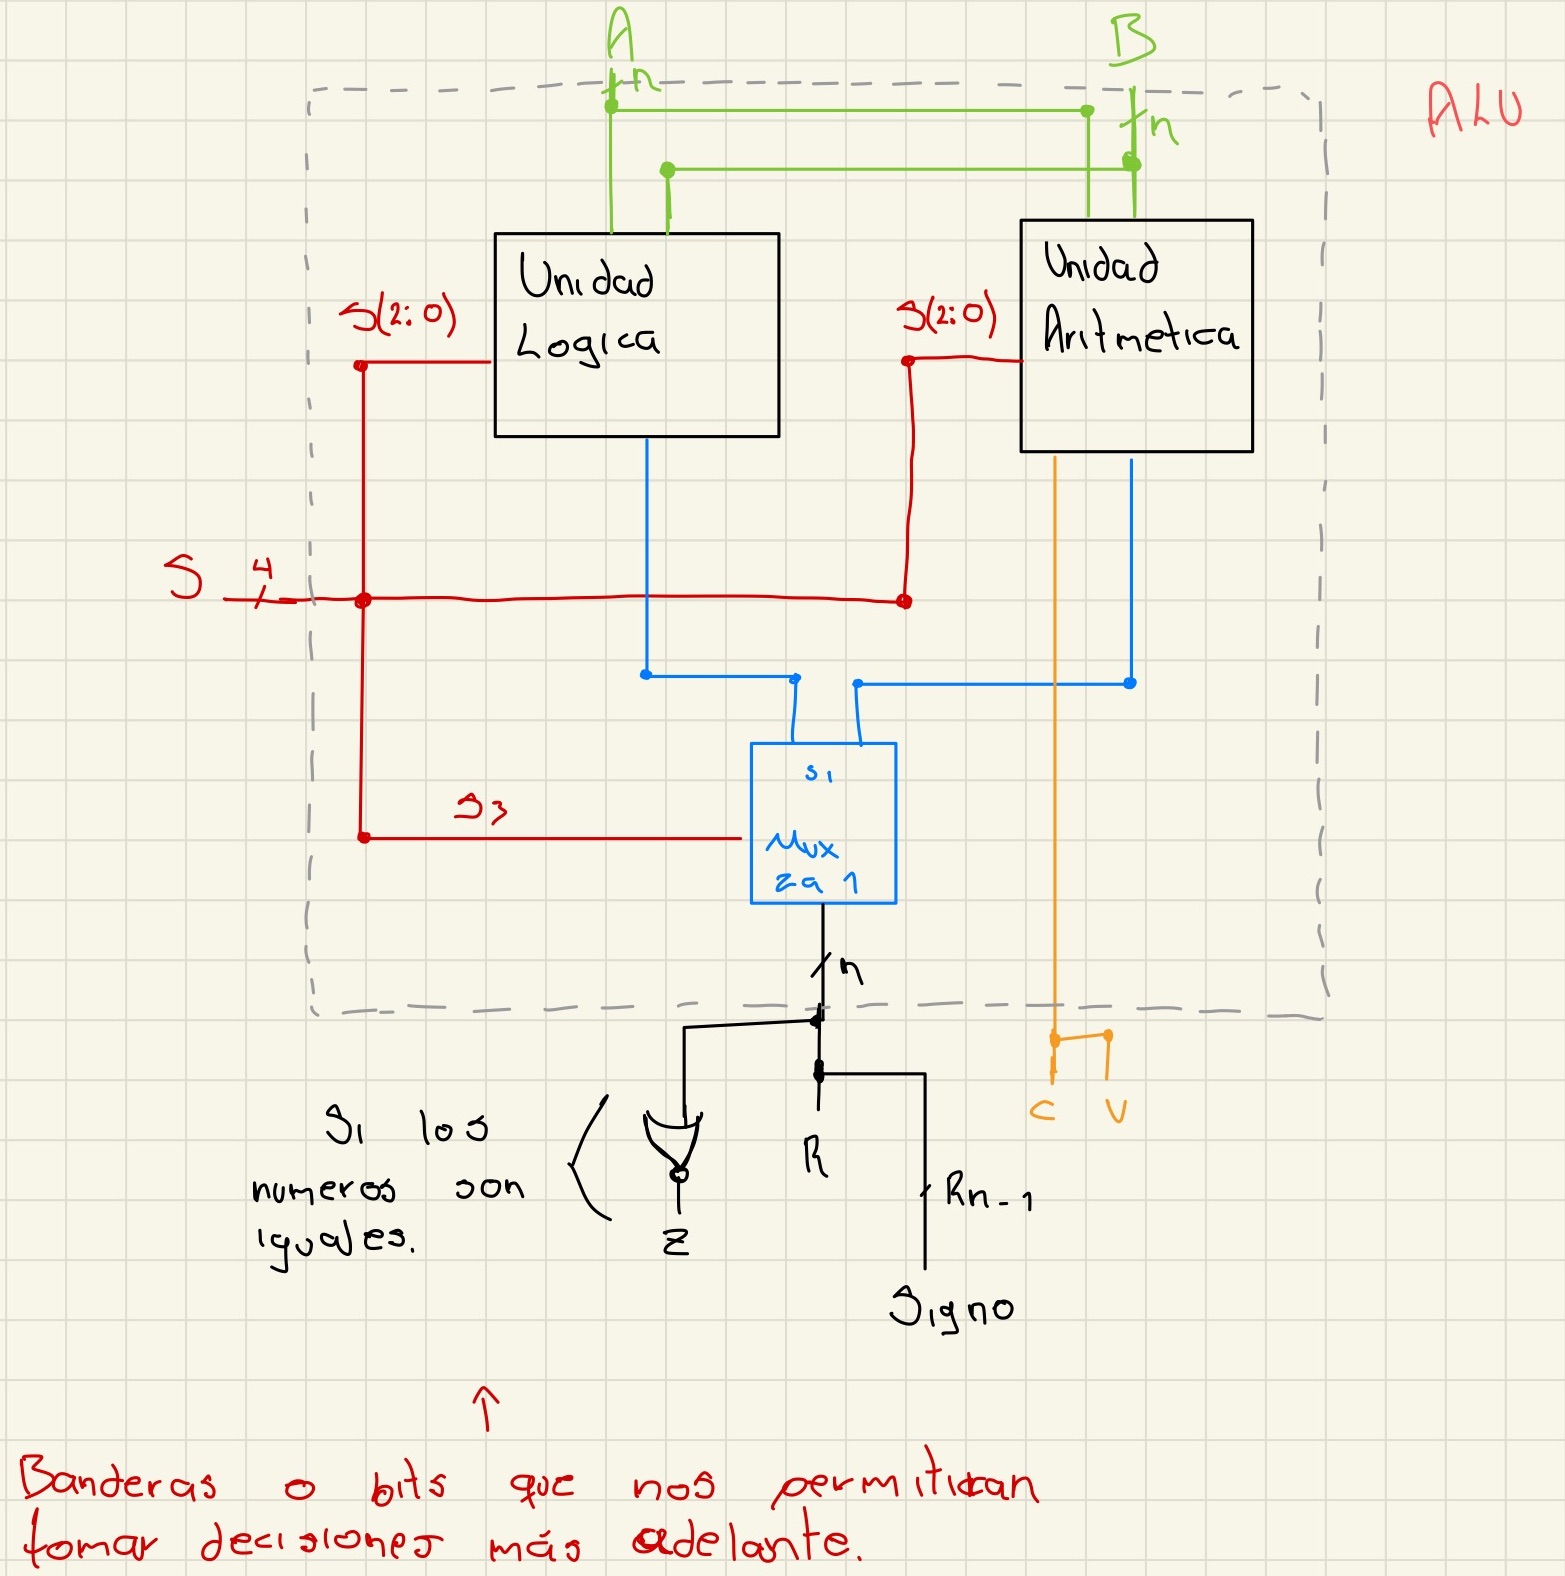 A
B
ALU
n
n
Unidad
Logica
Unidad
Aritmetica
S(2:0)
S(2:0)
S
4
S1
S3
Mux
2a 1
n
C
V
Si los
numeros son
iguales.
R
Rn-1
Z
Signo
Banderas o bits que nos permitiran
tomar decisiones más adelante.